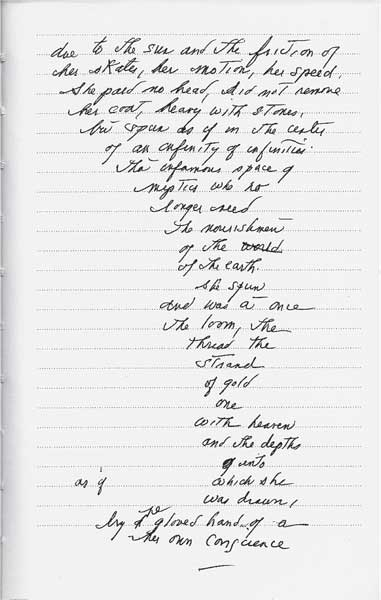 due to the sun and the friction of
her skates, her motion, her speed.
She paid no head, did not remove
her coat, heavy with stones,
but spun as if in the center
of an infinity of infinities.
The infamous space of
mystics who no
longer need
the nourishment
of the world
of the earth.
She spun
and was at once
the loom, the
thread the
strand
of gold
one
with heaven
and the depths
unto
as if which she
was drawn,
by the gloved hand of a
her own conscience